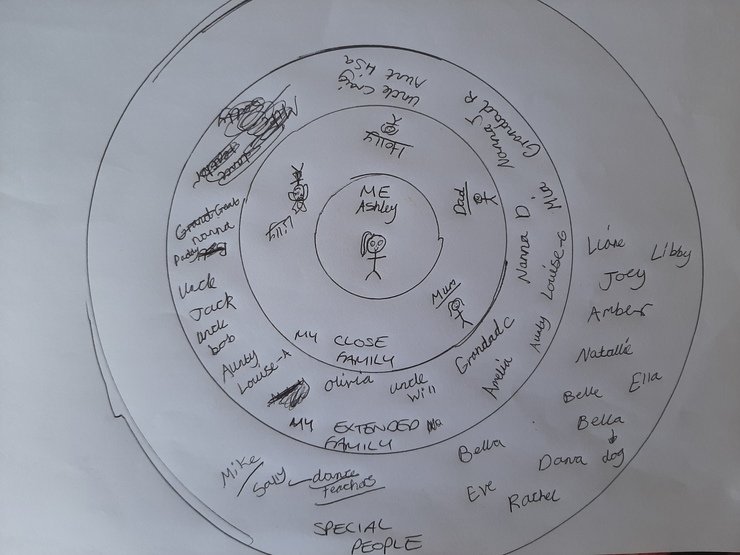 Uncle Craig
Aunt Lisa
Nanna J
Grandad R
Holly
ME
Ashley
Dad
Mia
Lilly
Great Great
nanna
Paddy
Nanna D
Louise-G
Aunty
Liane
Libby
Joey
Uncle
Jack
Mum
Amber
uncle
bob
MY CLOSE
FAMILY
Grandad C
Natallie
Aunty
Louise-A
Olivia
uncle
Will
Amelia
Belle
Ella
MY EXTENDED
FAMILY
Bella
dog
Bella
Mike
Sally
dance
Teachers
Dana
Eve
Rachel
SPECIAL
PEOPLE